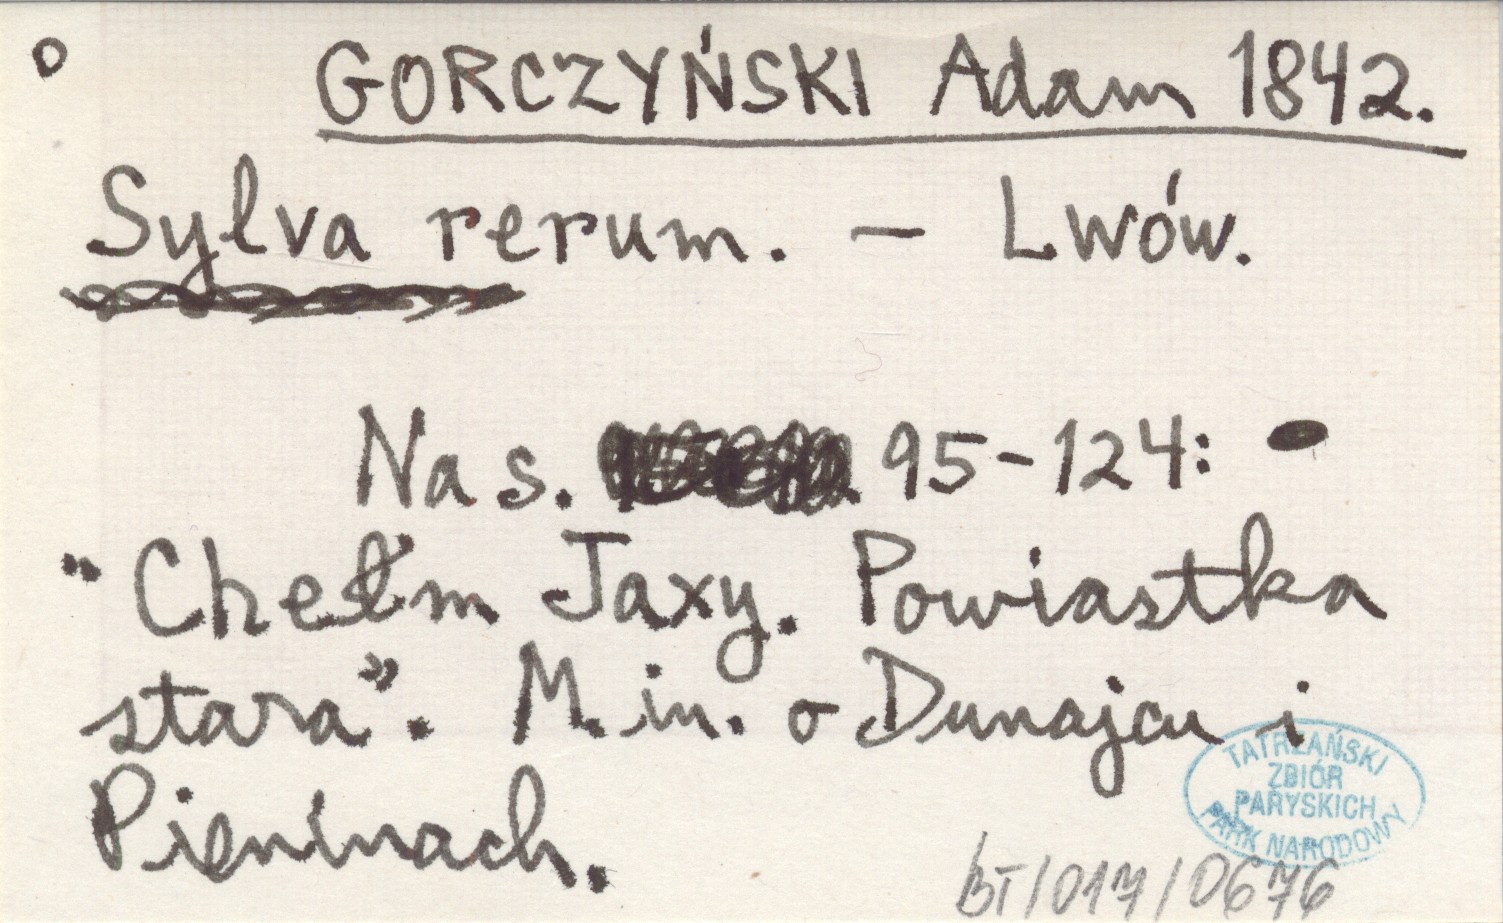 GORCZYŃSKI Adam 1842.
Sylva rerum. – Lwów.
Na s. 95-124:
"Chełm Jaxy. Powiastka
stara". M. in. o Dunajcu i
Pieninach.
TATRZAŃSKI
ZBIÓR
PARYSKICH
PARK NARODOWY
BT/017/0676